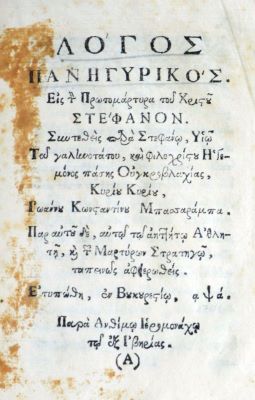 ΛΌΓΟΣ
ΠΑΝΗΓΥΡΙΚΌΣ.
Εἰς τ̀ Πρωτομάρτυρα τοῦ Χριςοῦ
ΣΤΈΦΑΝΟΝ.
Συντεθεὶς Στεφάνου, Υἱοῦ
Τοῦ γαληνοτάτου, καὶ φιλοχρίςου Ἡγε-
μόνος πάσης Οὐγκροβλαχίας,
Κυρίου Κυρίου,
Ἰωάννου Κωνςαντίνου Μπασσαράμπα.
Παρ αὐτοῦ δὲ, αὐτῷ τῷ ἀηττήτῳ Ἀθλη-
τῇ, κ̀ τ̃ Μαρτύρων Στρατηγῷ,
ταπεινῶς ἀφιερωθείς.
Ἐτυπώθη, ἐν Βυκυρεςίῳ, α ψά.
Παρὰ Ἀνθίμου Ἱερομονάχου
τοῦ ἐξ Ἰβηρίας.
(Α)